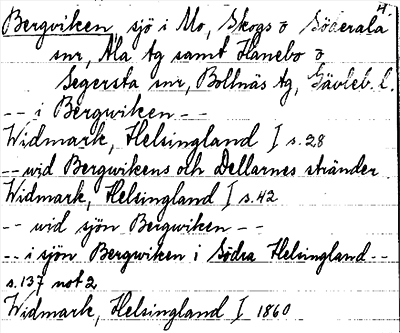 H.
Bergviken, sjö i Mo, Skogs o Söderala
snr, Ala tg samt Hanebo o
Segersta snr, Bollnäs tg, Gävleb. l.
-- i Bergwiken --
Widmark, Helsingland I s.28
-- wid Bergwikens och Dellarnes stränder
Widmark, Helsingland I s.42
-- wid sjön Bergwiken --
-- i sjön Bergwiken i Södra Helsingland --
s.137 not 2
Widmark, Helsingland I 1860